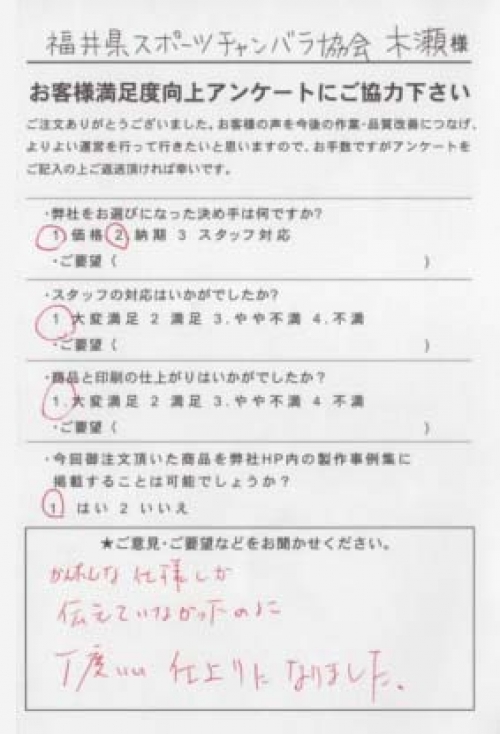 福井県スポーツチャンバラ協会 木瀬様
お客様満足度向上アンケートにご協力下さい
ご注文ありがとうございました。お客様の声を今後の作業・品質改善につなげ、
よりよい運営を行って行きたいと思いますので、お手数ですがアンケートを
ご記入の上ご返送頂ければ幸いです。
・弊社をお選びになった決め手は何ですか?
1 価格 2 納期 3 スタッフ対応
・ご要望( )
・スタッフの対応はいかがでしたか?
1.大変満足 2 満足 3.やや不満 4.不満
・ご要望( )
・商品と印刷の仕上がりはいかがでしたか?
1.大変満足 2 満足 3.やや不満 4 不満
・ご要望( )
・今回御注文頂いた商品を弊社HP内の製作事例集に
掲載することは可能でしょうか?
1 はい 2 いいえ
★ご意見・ご要望などをお聞かせください。
な仕様しか
伝えていなかったのに
丁度いい 仕上りになりました。